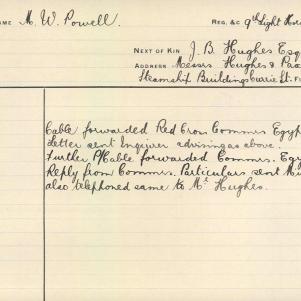 AME M. W. Powell. REG. &C 9th Light Hors
NEXT OF KIN J. B. Hughes Esq
ADDRESS Messrs Hughes &
Steamship Buildings Currie St.
Cable forwarded Red Cross Commrs Egyp
Letter sent Inquirer advising as above.
Further P/Cable forwarded Commrs. Eg
Reply from Commrs. Particulars sent
also telephoned same to Mr Hughes.